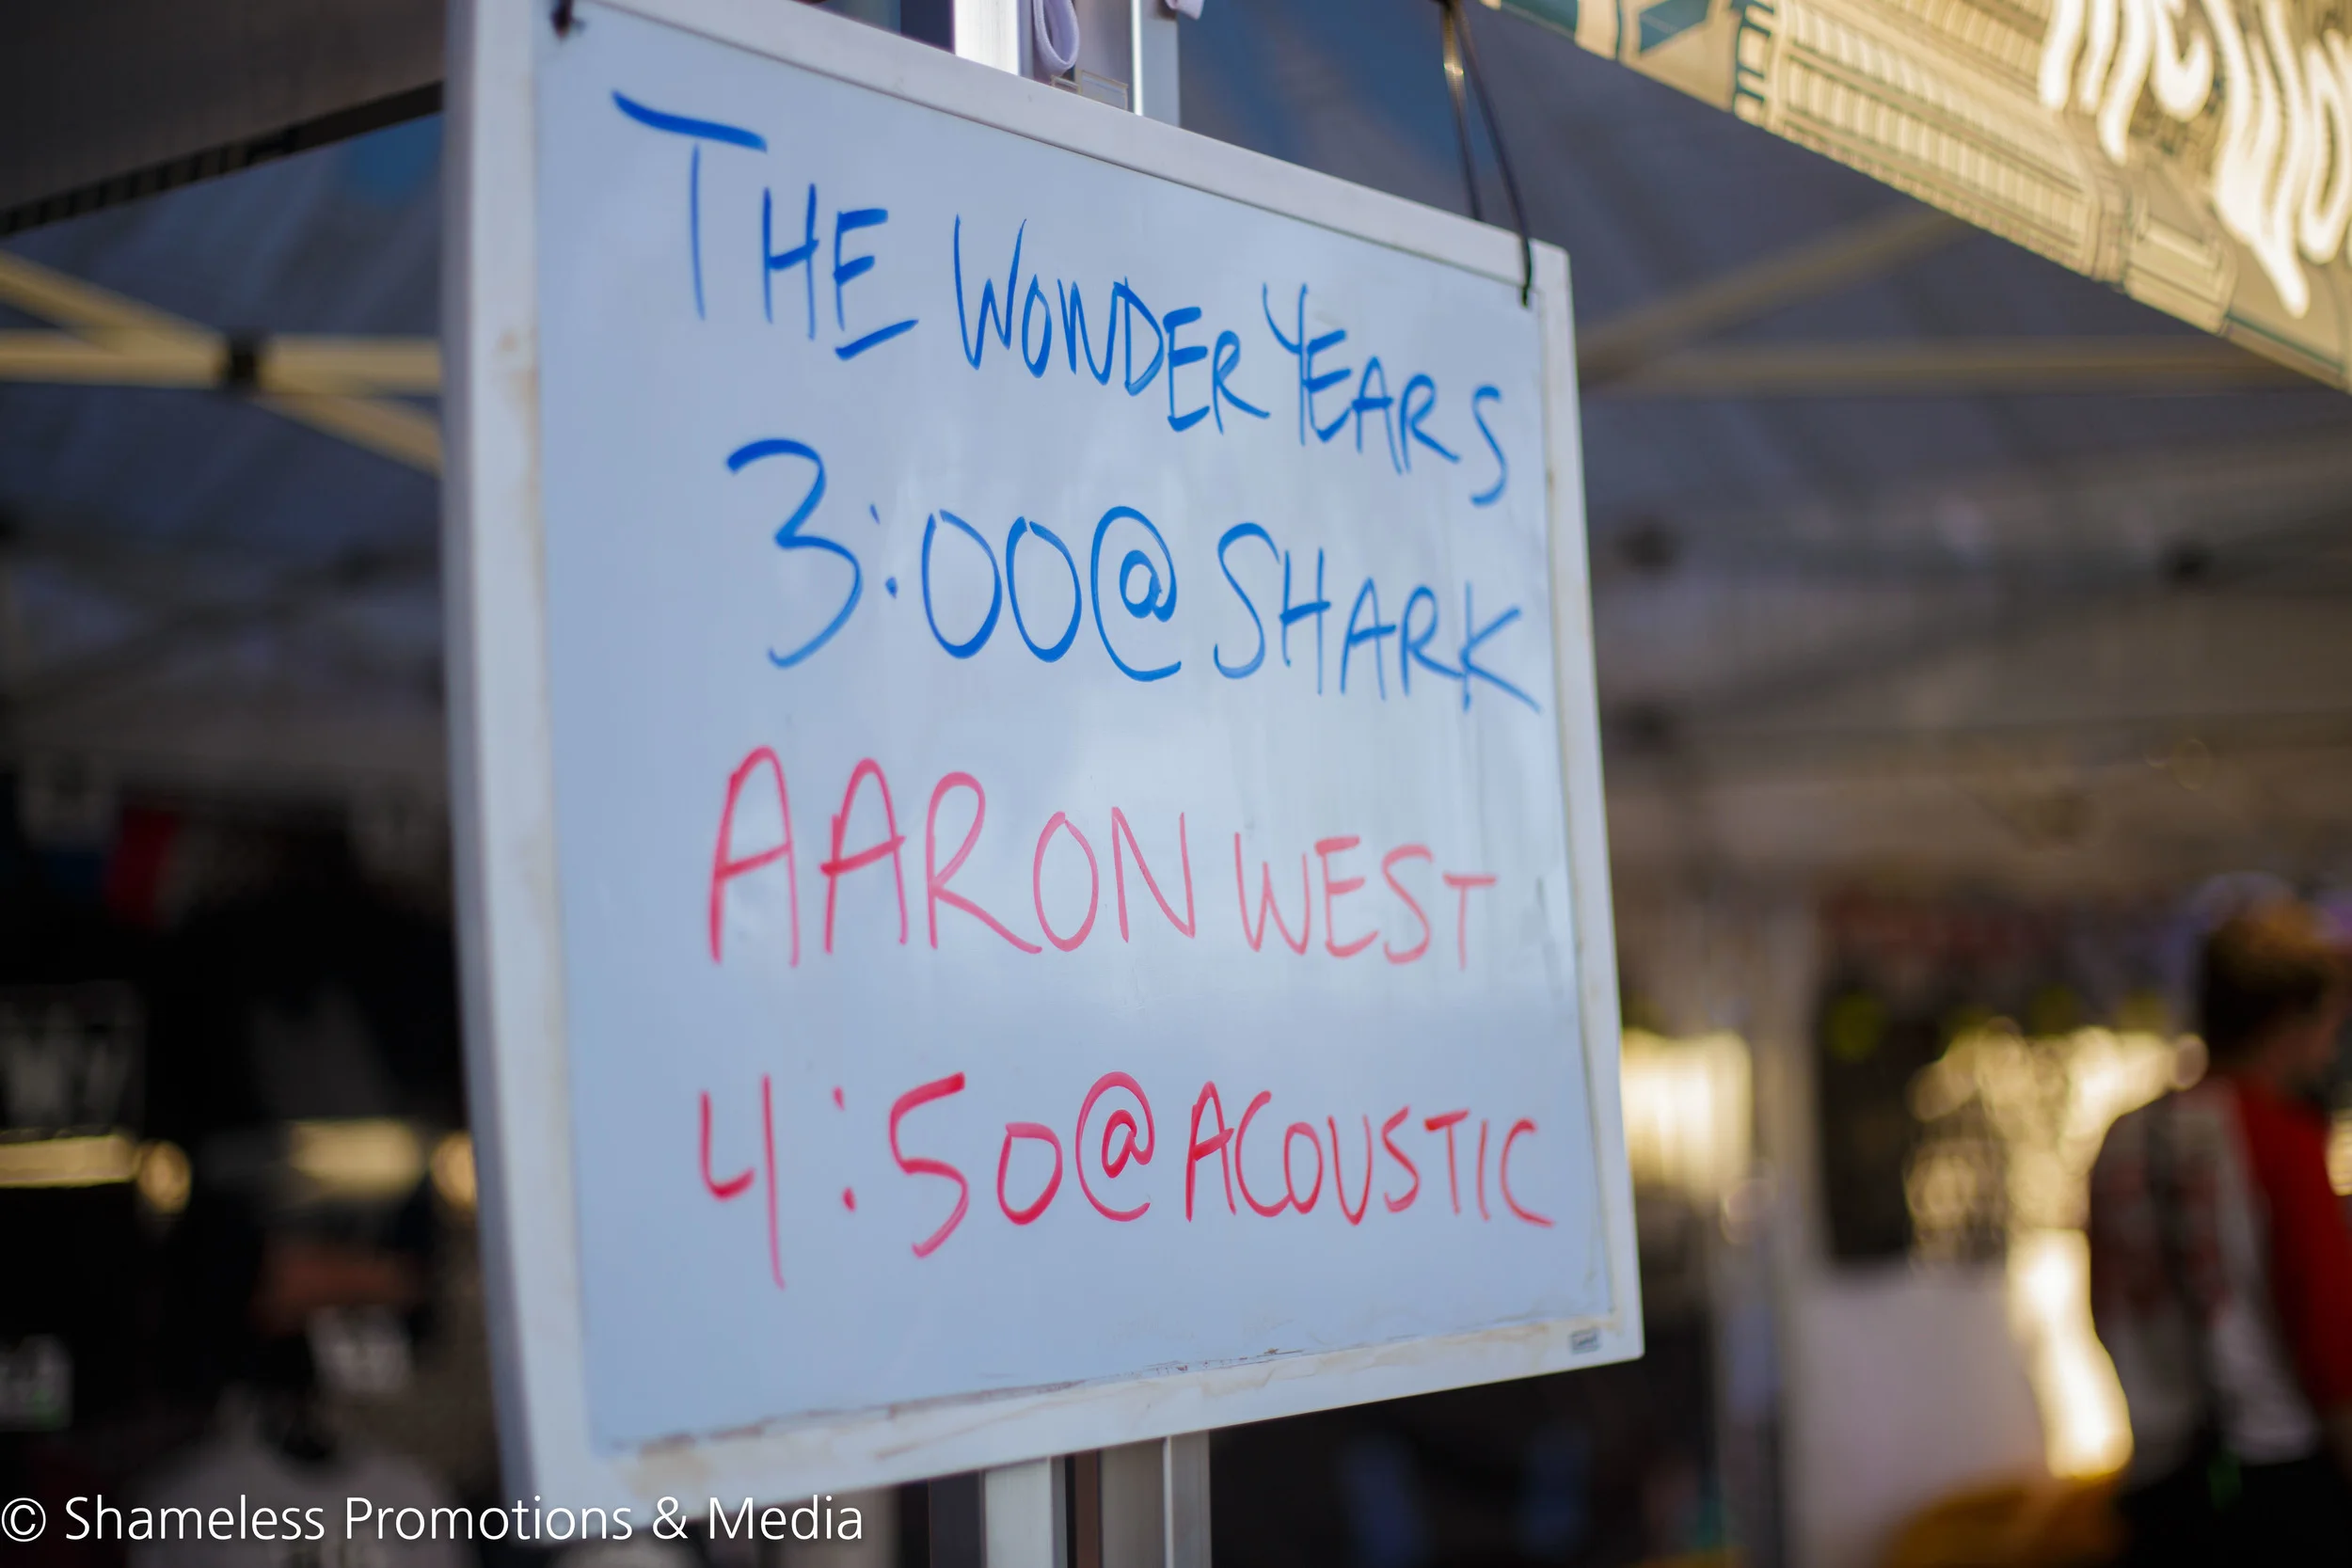 THE WONDER YEARS
3:00@ SHARK
AARON WEST
4:50@ ACOUSTIC
© Shameless Promotions & Media